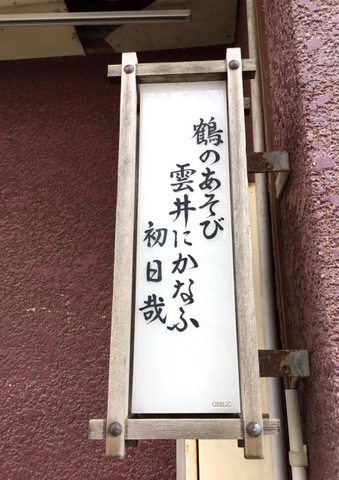 鶴のあそび
雲井にかなふ
初日哉